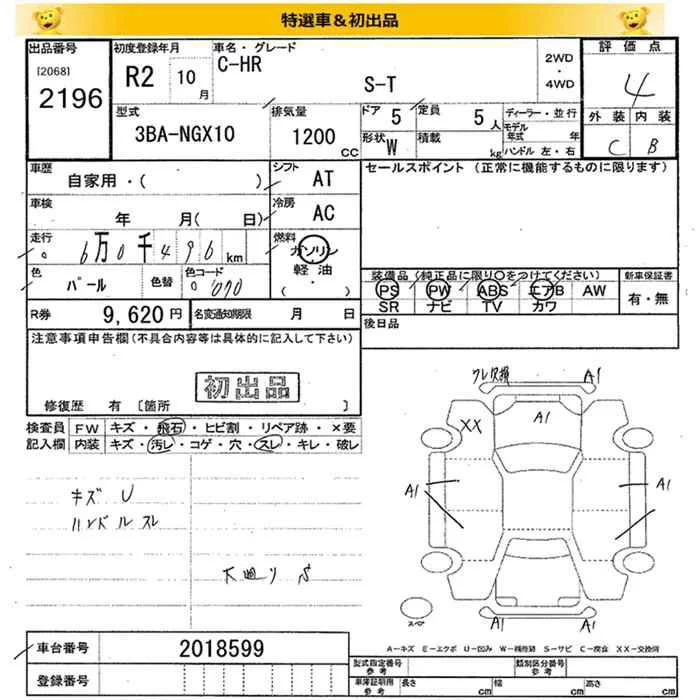 特選車&初出品
出品番号 初度登録年月 車名・グレード 評価点
[2068] R2 10月 C-HR 2WD・4WD 4
2196 S-T
型式 排気量 ドア 5 定員 5人 ディーラー・並行 外装 内装
3BA-NGX10 1200cc 形状 W 積載 kg モデル年式 年 C B
ハンドル 左・右
車歴 シフト セールスポイント (正常に機能するものに限ります)
自家用・( ) AT
車検 年 月( 日) 冷房 AC
走行 6万0千496km 燃料 ガソリン
軽油
・( )
色 パール 色替 色コード 070
装備品(純正品に限り○をつけてください) 新車保証書
PS PW ABS エアB AW 有・無
SR ナビ TV カワ
R券 9,620円 名変通知期限 月 日 後日品
注意事項申告欄(不具合内容等は具体的に記入して下さい)
初出品
修復歴 有 〔箇所 〕
検査員 FW キズ・飛石・ヒビ割・リペア跡・×要
記入欄 内装 キズ・汚レ・コゲ・穴・スレ・キレ・破レ
キズ U
ハンドルスレ
下廻り S
A1
A1
XX
A1
A1
A1
A1
スペア
A-キズ E-エクボ U-凹み W-補修跡 S-サビ C-腐食 XX-交換済
車台番号 2018599
登録番号
型式指定番号 参考 類別区分番号 参考
車庫証明用 参考 長さ cm 幅 cm 高さ cm